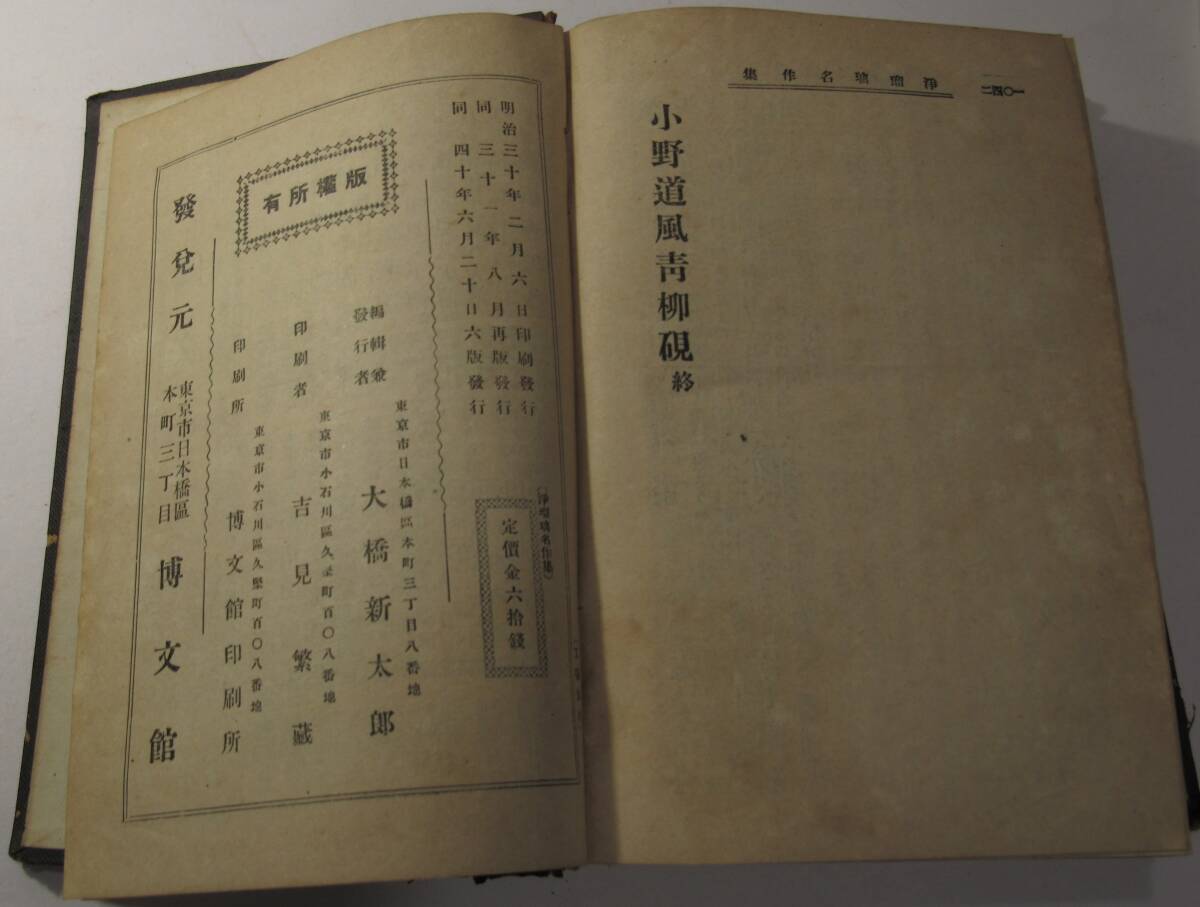 一〇四二
淨瑠璃名作集
小野道風青柳硯 終
（淨瑠璃名作集）
定價金六拾錢
明治三十年二月六日印刷發行
同三十一年八月再版發行
同四十年六月二十日六版發行
版權所有
東京市日本橋區本町三丁目八番地
編輯兼
發行者
大橋新太郎
東京市小石川區久堅町百〇八番地
印刷者 吉見繁藏
東京市小石川區久堅町百〇八番地
印刷所 博文館印刷所
發兌元
東京市日本橋區
本町三丁目
博文館